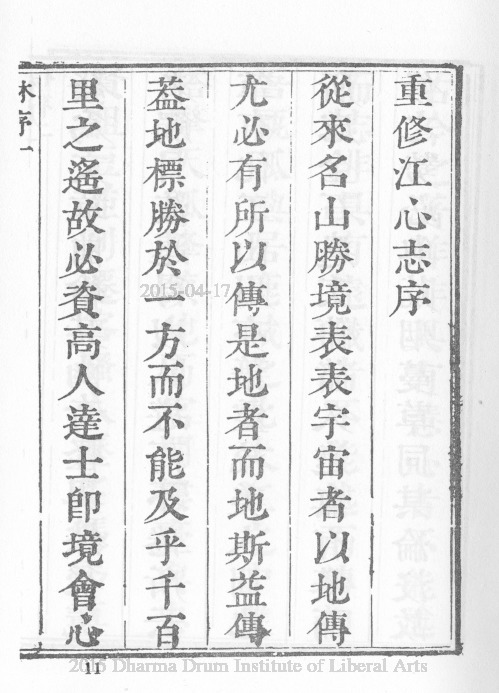 重修江心志序
從來名山勝境表表宇宙者以地傳
尤必有所以傳是地者而地斯益傳
葢地標勝於一方而不能及乎千百
里之遙故必資高人達士卽境會心
林序一
2015-04-17
11
2015 Dharma Drum Institute of Liberal Arts